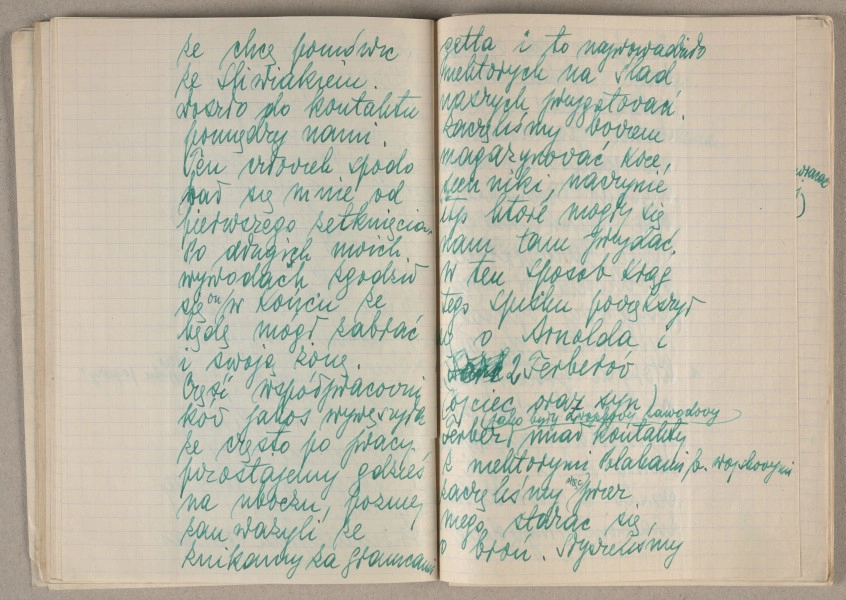 że chcę pomówić
ze Śliwiakiem.
doszło do kontaktu
pomiędzy nami.
Ten człowiek spodo
bał się mnie od
pierwszego zetknięcia.
Po długich moich
wywodach zgodził
się on w końcu że
będę mógł zabrać
i swoją żonę.
Część współpracowni
ków jakoś wywęszyła
że często po pracy
pozostajemy gdzieś
na uboczu, później
zauważyli że
znikamy za granicami
getta i to naprowadziło
niektórych na ślad
naszych przygotowań.
zaczęliśmy bowiem
magazynować koce,
sienniki, naczynie
itp które mogły się
nam tam przydać.
W ten sposób krąg
tego spisku powiększył
się o Arnolda i
2 Ferberów
(ojciec oraz syn)
jako były zawodowy
Ferber miał kontakty
z niektórymi Polakami b. wojskowymi
zaczęliśmy więc przez
niego starać się
o broń. Myśleliśmy